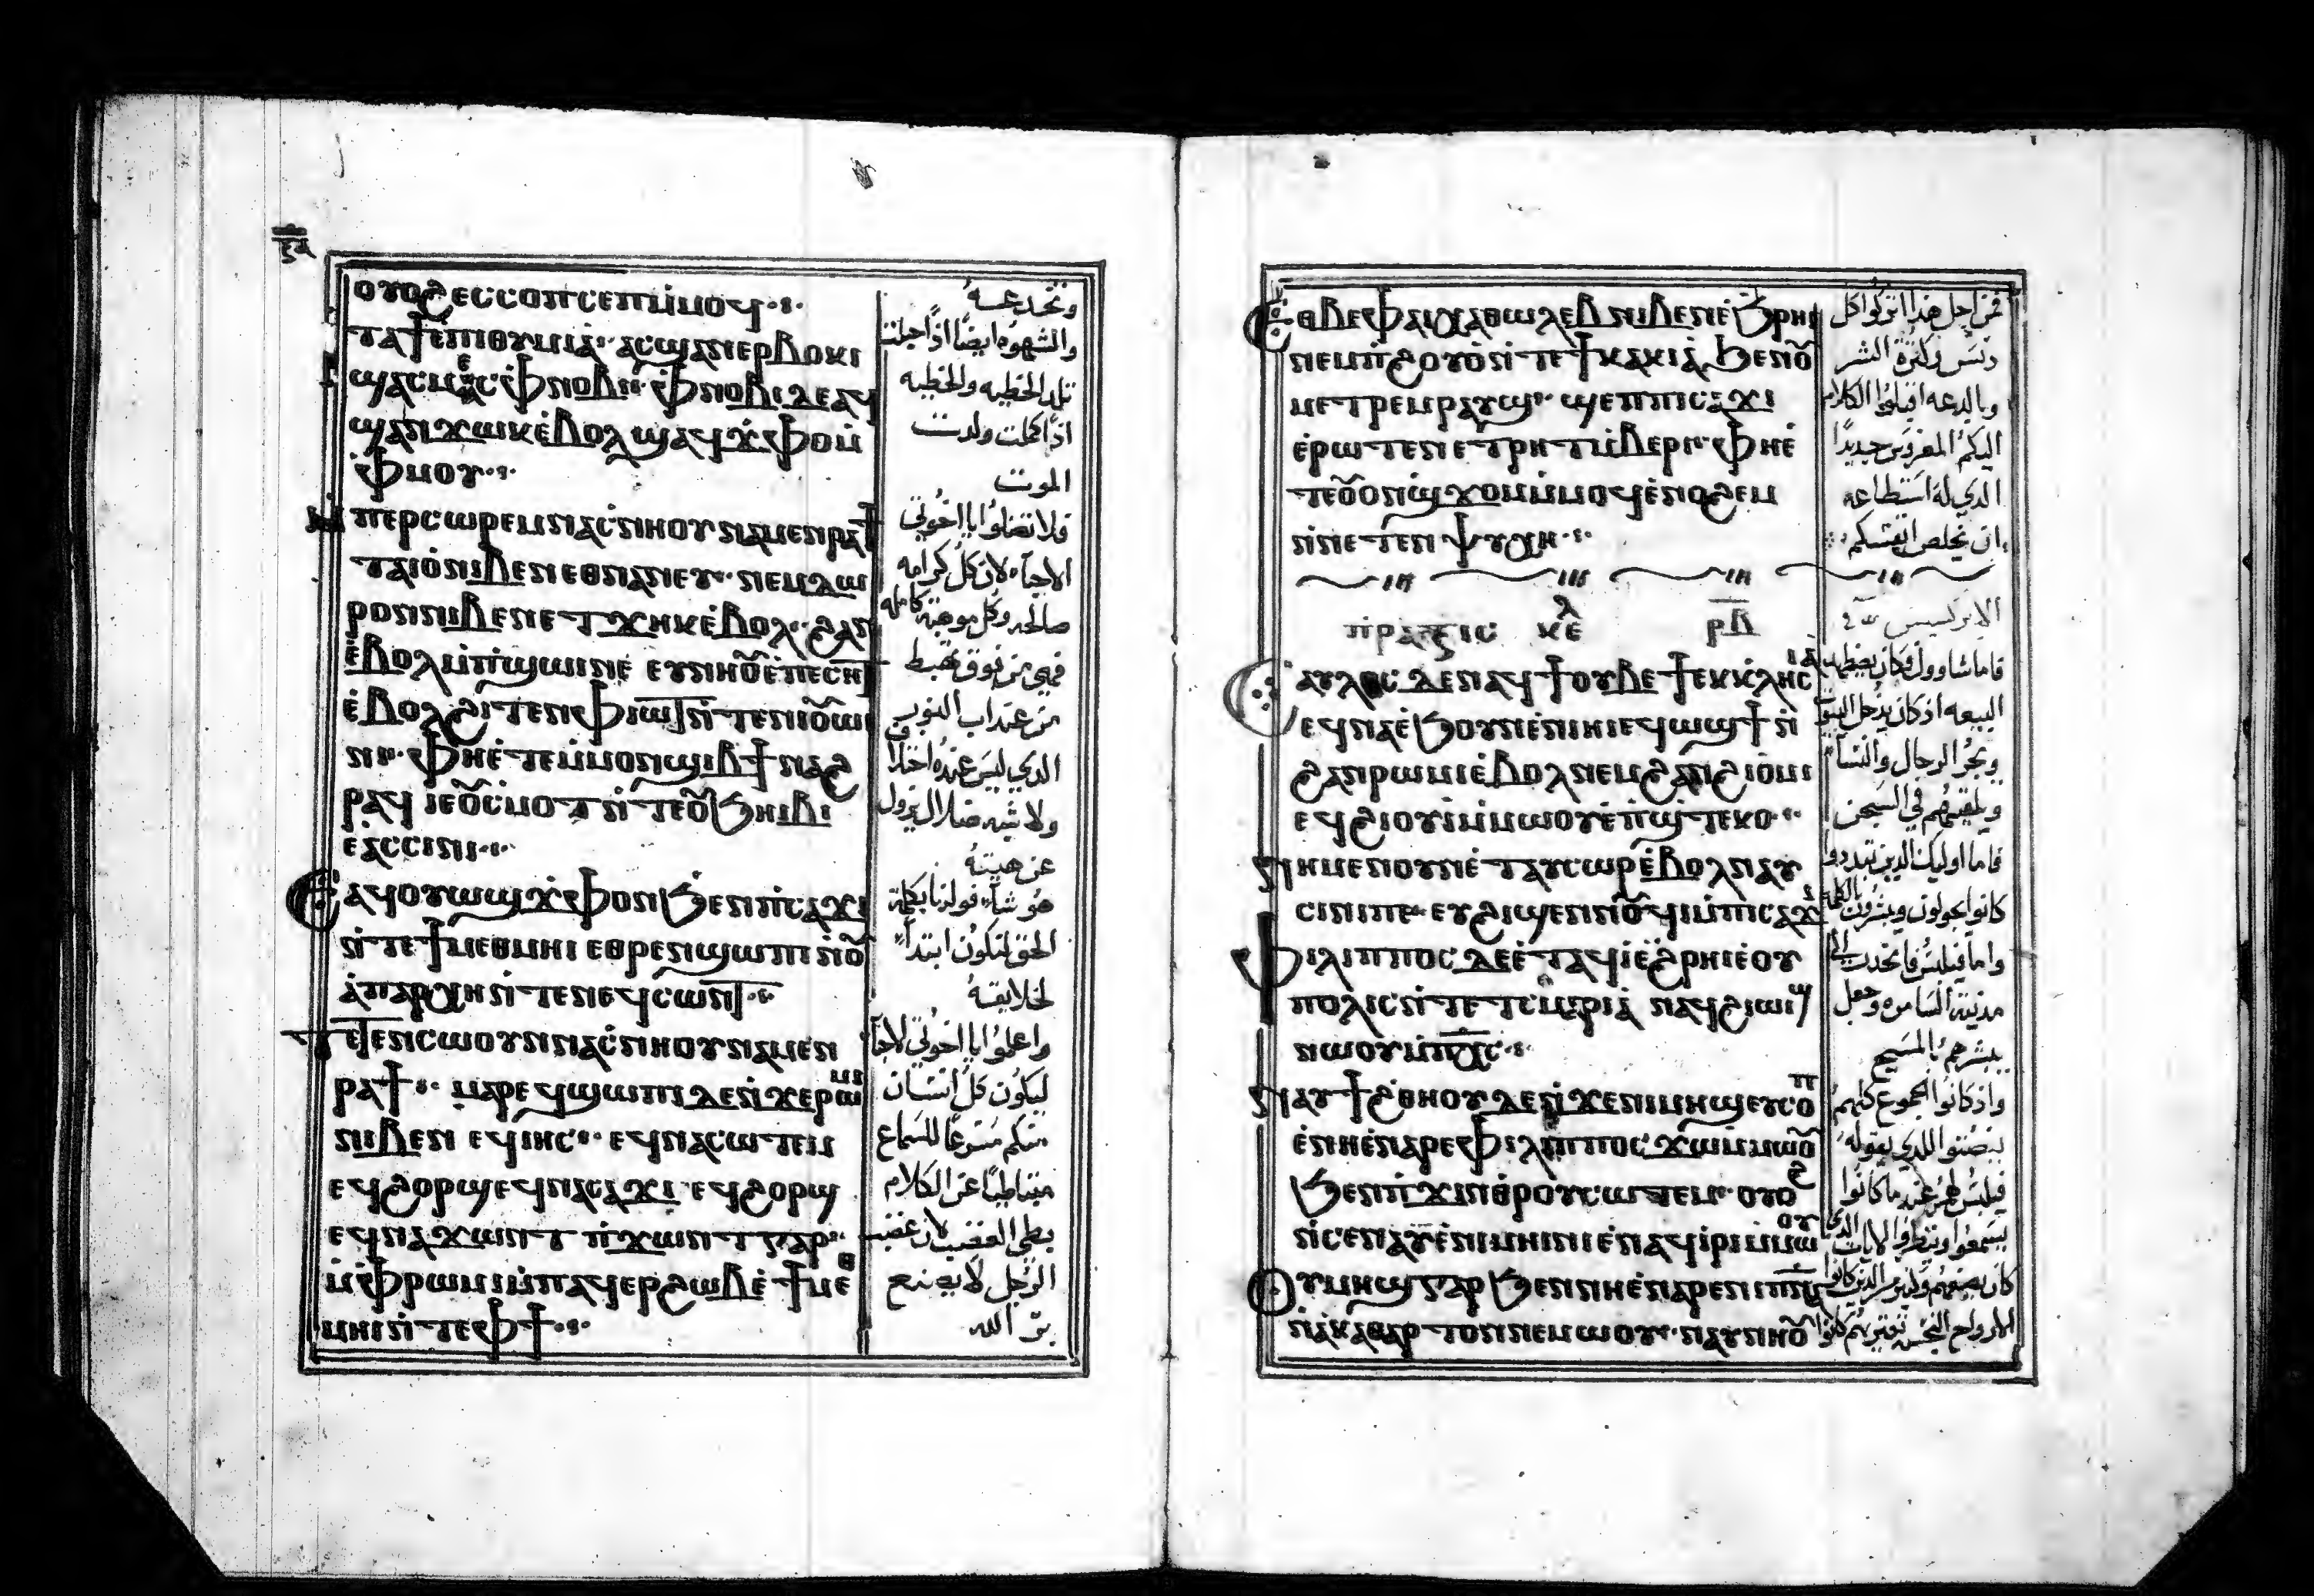 ⲟⲩⲟϩ ⲉⲥⲥⲟⲡⲥⲉⲡ ⲙ̇ⲙⲟϥ
ⲧⲁϯⲉ̇ⲡⲓⲑⲩⲙⲓⲁ̇ ⲁⲥϣⲁⲛⲉⲣⲃⲟⲕⲓ
ϣⲁⲥⲙⲉⲥ ⲫⲛⲟⲃⲓ ⲫⲛⲟⲃⲓ ⲇⲉ ⲁϥ
ϣⲁⲛϫⲱⲕ ⲉ̇ⲃⲟⲗ ϣⲁϥϫ̇ⲫⲟ ⲙ̇
ⲫⲙⲟⲩ
ⲙ̇ⲡⲉⲣⲥⲱⲣⲉⲙ ⲛⲁⲥ̇ⲛⲏⲟⲩ ⲛⲁⲙⲉⲛⲣⲁϯ
ⲧⲁⲓⲟ̇ ⲛⲓⲃⲉⲛ ⲉⲑⲛⲁⲛⲉⲩ ⲛⲉⲙ ⲇⲱ
ⲣⲟⲛ ⲛⲓⲃⲉⲛ ⲉⲧϫⲏⲕ ⲉ̇ⲃⲟⲗ ϩⲁⲛ
ⲉ̇ⲃⲟⲗ ⲙ̇ⲡϣⲱⲓ ⲛⲉ ⲉⲩⲛⲏⲟⲩ ⲉ̇ⲡⲉⲥⲏⲧ
ⲉ̇ⲃⲟⲗ ϩⲓⲧⲉⲛ ⲫⲓⲱⲧ ⲛ̇ⲧⲉ ⲛⲓⲟⲩⲱ
ⲛⲓ ⲫⲏ ⲉ̇ⲧⲉ ⲙ̇ⲙⲟⲛ ϣⲓⲃϯ ⲛⲁϩ
ⲣⲁϥ ⲓⲉ ⲟⲩⲥⲙⲟⲧ ⲛ̇ⲧⲉ ⲟⲩϧⲏⲓⲃⲓ
ⲉⲁ̇ⲥⲥⲓⲛⲓ
ⲉⲁϥⲟⲩⲱϣ ϫ̇ⲫⲟⲛ ϧⲉⲛ ⲡ̇ⲥⲁϫⲓ
ⲛ̇ⲧⲉ ϯⲙⲉⲑⲙⲏⲓ ⲉⲑⲣⲉⲛϣⲱⲡⲓ ⲛ̇ⲟⲩ
ⲁ̇ⲡⲁⲣⲭⲏ ⲛ̇ⲧⲉ ⲛⲉϥⲥⲱⲛⲧ
ⲧⲉⲧⲉⲛⲥⲱⲟⲩⲛ ⲛⲁⲥ̇ⲛⲏⲟⲩ ⲛⲁⲙⲉⲛ
ⲣⲁϯ ⲙⲁⲣⲉϥϣⲱⲡⲓ ⲇⲉ ⲛ̇ϫⲉ ⲣⲱⲙⲓ
ⲛⲓⲃⲉⲛ ⲉϥⲓⲏⲥ ⲉϥⲛⲁⲥⲱⲧⲉⲙ
ⲉϥϩⲟⲣϣ ⲉϥⲛⲁⲥⲁϫⲓ ⲉϥϩⲟⲣϣ
ⲉϥⲛⲁϫⲱⲛⲧ ⲡ̇ϫⲱⲛⲧ ⲅⲁⲣ
ⲙ̇ⲫⲣⲱⲙⲓ ⲙ̇ⲡⲁϥⲉⲣϩⲱⲃ ⲉ̇ϯⲙⲉⲑ
ⲙⲏⲓ ⲛ̇ⲧⲉ ⲫϯ
وتخدعه
والشهوه ايضًا اذا حبلت
تلد الخطيه والخطيه
اذا كملت ولدت
الموت
فلا تضلوا يا اخوتي
الاحبآء لان كل كرامه
صالحه وكل موهبة كامله
فهي من فوق تهبط
من عند اب النور
الدي ليس عنده اختلا ف
ولا شبه ضلال يزول
عن هيئته
هو شاء فولدنا بكلمة
الحق لنكون ابتداء
لخلايقه
واعلموا يا اخوتي الاحبآ
ليكون كل انسان
منكم مسرعًا للسماع
متباطيًا عن الكلام
بطي الغضب لان غضب
الرجل لا يصنع
برّ الله
ⲉⲑⲃⲉ ⲫⲁⲓ ⲭⲁ ⲑⲱⲗⲉⲃ ⲛⲓⲃⲉⲛ ⲉ̇ϧⲣⲏⲓ
ⲛⲉⲙ ⲡ̇ϩⲟⲩⲟ̇ ⲛ̇ⲧⲉ ϯⲕⲁⲕⲓⲁ̇ ϧⲉⲛ ⲟⲩ
ⲙⲉⲧⲣⲉⲙⲣⲁⲩϣ ϣⲉⲡ ⲡⲓⲥⲁϫⲓ
ⲉ̇ⲣⲱⲧⲉⲛ ⲉⲧⲣⲏⲧ ⲙ̇ⲃⲉⲣⲓ ⲫⲏ ⲉ̇
ⲧⲉ ⲟⲩⲟⲛϣϫⲟⲙ ⲙ̇ⲙⲟϥ ⲉ̇ⲛⲟϩⲉⲙ
ⲛ̇ⲛⲉⲧⲉⲛⲯⲩⲭⲏ
ⲡⲣⲁⲝⲓⲥ ⲕⲉⲗ ⲣⲃ
ⲥⲁⲩⲗⲟⲥ ⲇⲉ ⲛⲁϥϯⲟⲩⲃⲉ ϯⲉⲕⲕⲗⲏⲥⲓⲁ̇
ⲉϥⲛⲁ ⲉ̇ϧⲟⲩⲛ ⲉ̇ⲛⲓⲏⲓ ⲉϥϣⲱϯ ⲛ̇
ϩⲁⲛⲣⲱⲙⲓ ⲉ̇ⲃⲟⲗ ⲛⲉⲙ ϩⲁⲛϩⲓⲟⲙⲓ
ⲉϥϩⲓⲟⲩⲓ̇ ⲙ̇ⲙⲱⲟⲩ ⲉ̇ⲡ̇ϣ̇ⲧⲉⲕⲟ
ⲛⲏ ⲙⲉⲛ ⲟⲩⲛ ⲉ̇ⲧⲁⲩⲥⲱⲣ ⲉ̇ⲃⲟⲗ ⲛⲁⲩ
ⲥⲓⲛⲓ ⲡⲉ ⲉⲩϩⲓϣⲉⲛⲛⲟⲩϥⲓ ⲙ̇ⲡⲓⲥⲁϫⲓ
ⲫⲓⲗⲓⲡⲡⲟⲥ ⲇⲉ ⲉ̇ⲧⲁϥⲓ̇ ⲉ̇ϩⲣⲏⲓ ⲉ̇ⲟⲩ
ⲡⲟⲗⲓⲥ ⲛ̇ⲧⲉ ⲧⲥⲁⲙⲁⲣⲓⲁ̇ ⲛⲁϥϩⲓⲱⲓϣ
ⲛⲱⲟⲩ ⲙ̇ⲡⲭⲥ
ⲛⲁⲩϯϩⲑⲏⲟⲩ ⲇⲉ ⲛ̇ϫⲉ ⲛⲓⲙⲏϣ ⲉⲩⲥⲟⲡ
ⲉ̇ⲛⲏ ⲉ̇ⲛⲁⲣⲉ ⲫⲓⲗⲓⲡⲡⲟⲥ ϫⲱ ⲙ̇ⲙⲱⲟⲩ
ϧⲉⲛ ⲡ̇ϫⲓⲛⲑⲣⲟⲩⲥⲱⲧⲉⲙ ⲟⲩⲟϩ
ⲛ̇ⲥⲉⲛⲁⲩ ⲉ̇ⲛⲓⲙⲏⲓⲛⲓ ⲉ̇ⲛⲁϥⲓ̇ⲣⲓ ⲙ̇ⲙⲱⲟⲩ
ⲟⲩⲙⲏϣ ⲅⲁⲣ ϧⲉⲛ ⲛⲏ ⲉ̇ⲛⲁⲣⲉ ⲛⲓⲡⲛⲁ
ⲛ̇ⲁⲕⲁⲑⲁⲣⲧⲟⲛ ⲛⲉⲙⲱⲟⲩ ⲛⲁⲩⲛⲏⲟⲩ
فمن اجل هذا اتركوا كل
دنس وكثرة الشر
وبالدعه اقبلوا الكلام
اليكم المغروس جديدًا
الدي له استطاعه
ان يخلص انفسكم
الابركسيس
فاما شاوول فكان يضطهد
البيعه اذ كان يدخل البيوت
ويجر الرجال والنسآء
ويلقيهم في السجن
فاما اوليك الدين تبددوا
كانوا يجولون ويبشرون بالكلمه
واما فيلبس فانحدر الى
مدينة السامره وجعل
يبشرهم بالمسيح
واذ كانوا الجموع كلهم
ينصتوا للدي يقوله
فيلبس لهم عند ما كانوا
يسمعوا وينظروا الايات الدي
كان يصنعهم وكثير الدين كانوا
الارواح النجسه تعتريهم كانوا